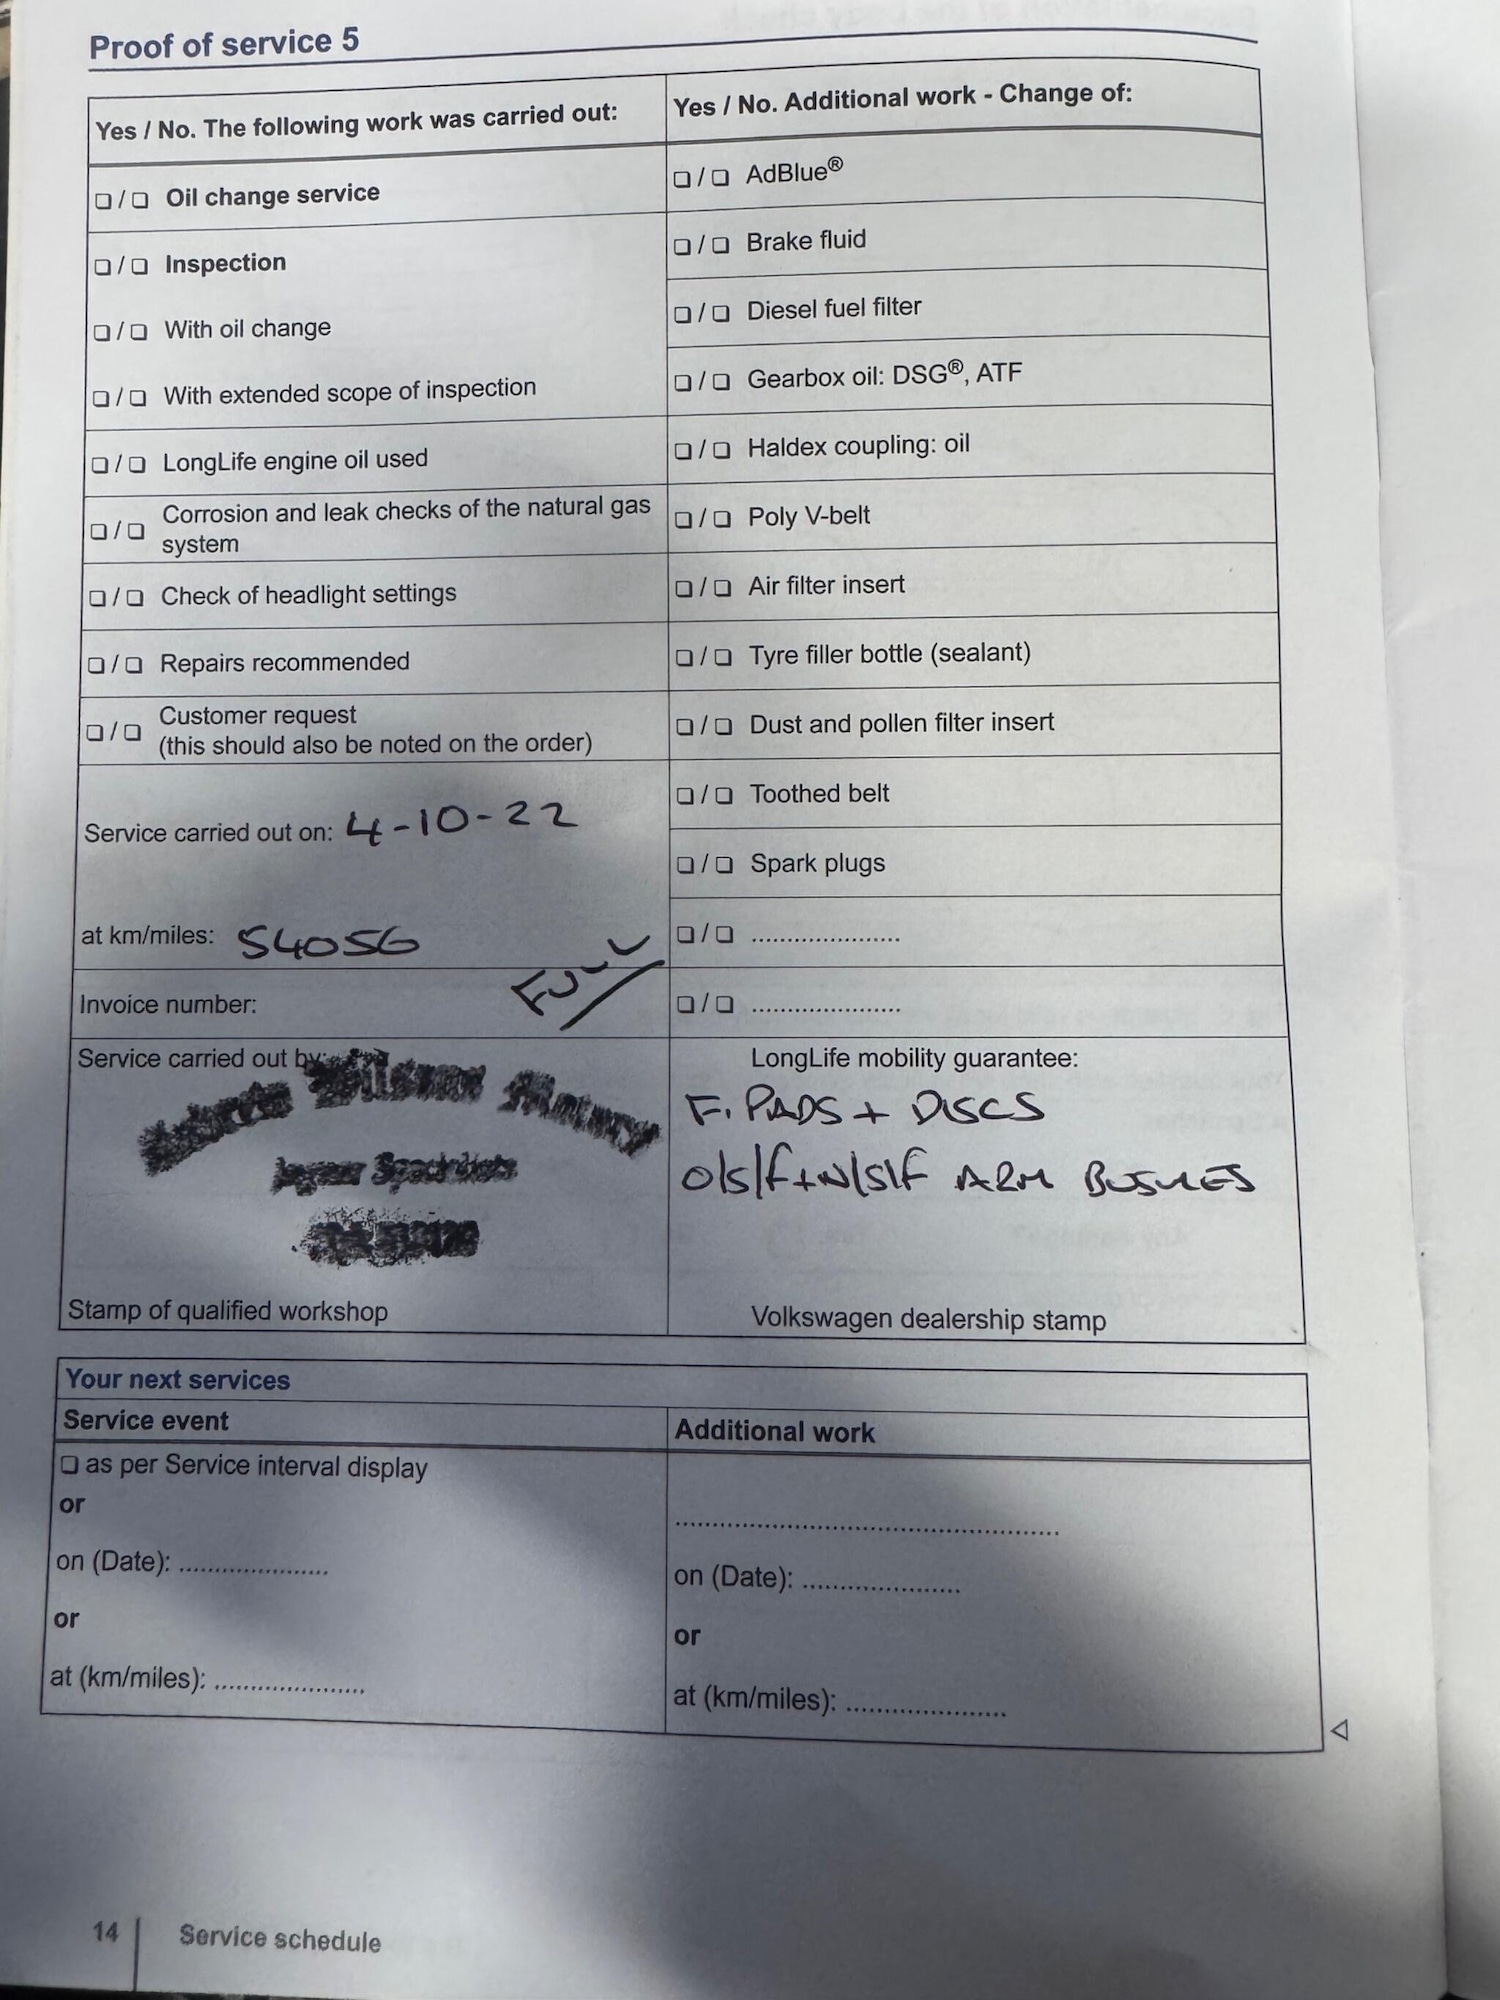 Proof of service 5
Yes / No. The following work was carried out:
❏ / ❏ Oil change service
❏ / ❏ Inspection
❏ / ❏ With oil change
❏ / ❏ With extended scope of inspection
❏ / ❏ LongLife engine oil used
❏ / ❏ Corrosion and leak checks of the natural gas
system
❏ / ❏ Check of headlight settings
❏ / ❏ Repairs recommended
❏ / ❏ Customer request
(this should also be noted on the order)
Service carried out on: 4-10-22
at km/miles: 54056
Invoice number:
FULL
Service carried out by:
Motors
Stamp of qualified workshop
Yes / No. Additional work - Change of:
❏ / ❏ AdBlue®
❏ / ❏ Brake fluid
❏ / ❏ Diesel fuel filter
❏ / ❏ Gearbox oil: DSG®, ATF
❏ / ❏ Haldex coupling: oil
❏ / ❏ Poly V-belt
❏ / ❏ Air filter insert
❏ / ❏ Tyre filler bottle (sealant)
❏ / ❏ Dust and pollen filter insert
❏ / ❏ Toothed belt
❏ / ❏ Spark plugs
❏ / ❏ .....................
❏ / ❏ .....................
LongLife mobility guarantee:
F. PADS + DISCS
O/S/F + N/S/F ARM BUSHES
Volkswagen dealership stamp
Your next services
Service event
❏ as per Service interval display
or
on (Date): .....................
or
at (km/miles): .....................
Additional work
.....................................................
on (Date): .....................
or
at (km/miles): .....................
14 Service schedule